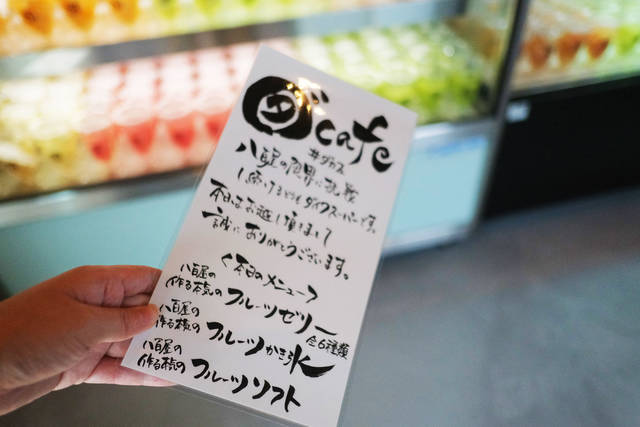 ダ cafe
#ダカフェ
八百屋の限界に挑戦
し続けるどうもダイワスーパーです。
本日はお越し頂きまして
誠にありがとうございます。
<本日のメニュー>
八百屋の
作る本気の フルーツゼリー
全6種類
八百屋の
作る本気の フルーツかき氷
八百屋の
作る本気の フルーツソフト